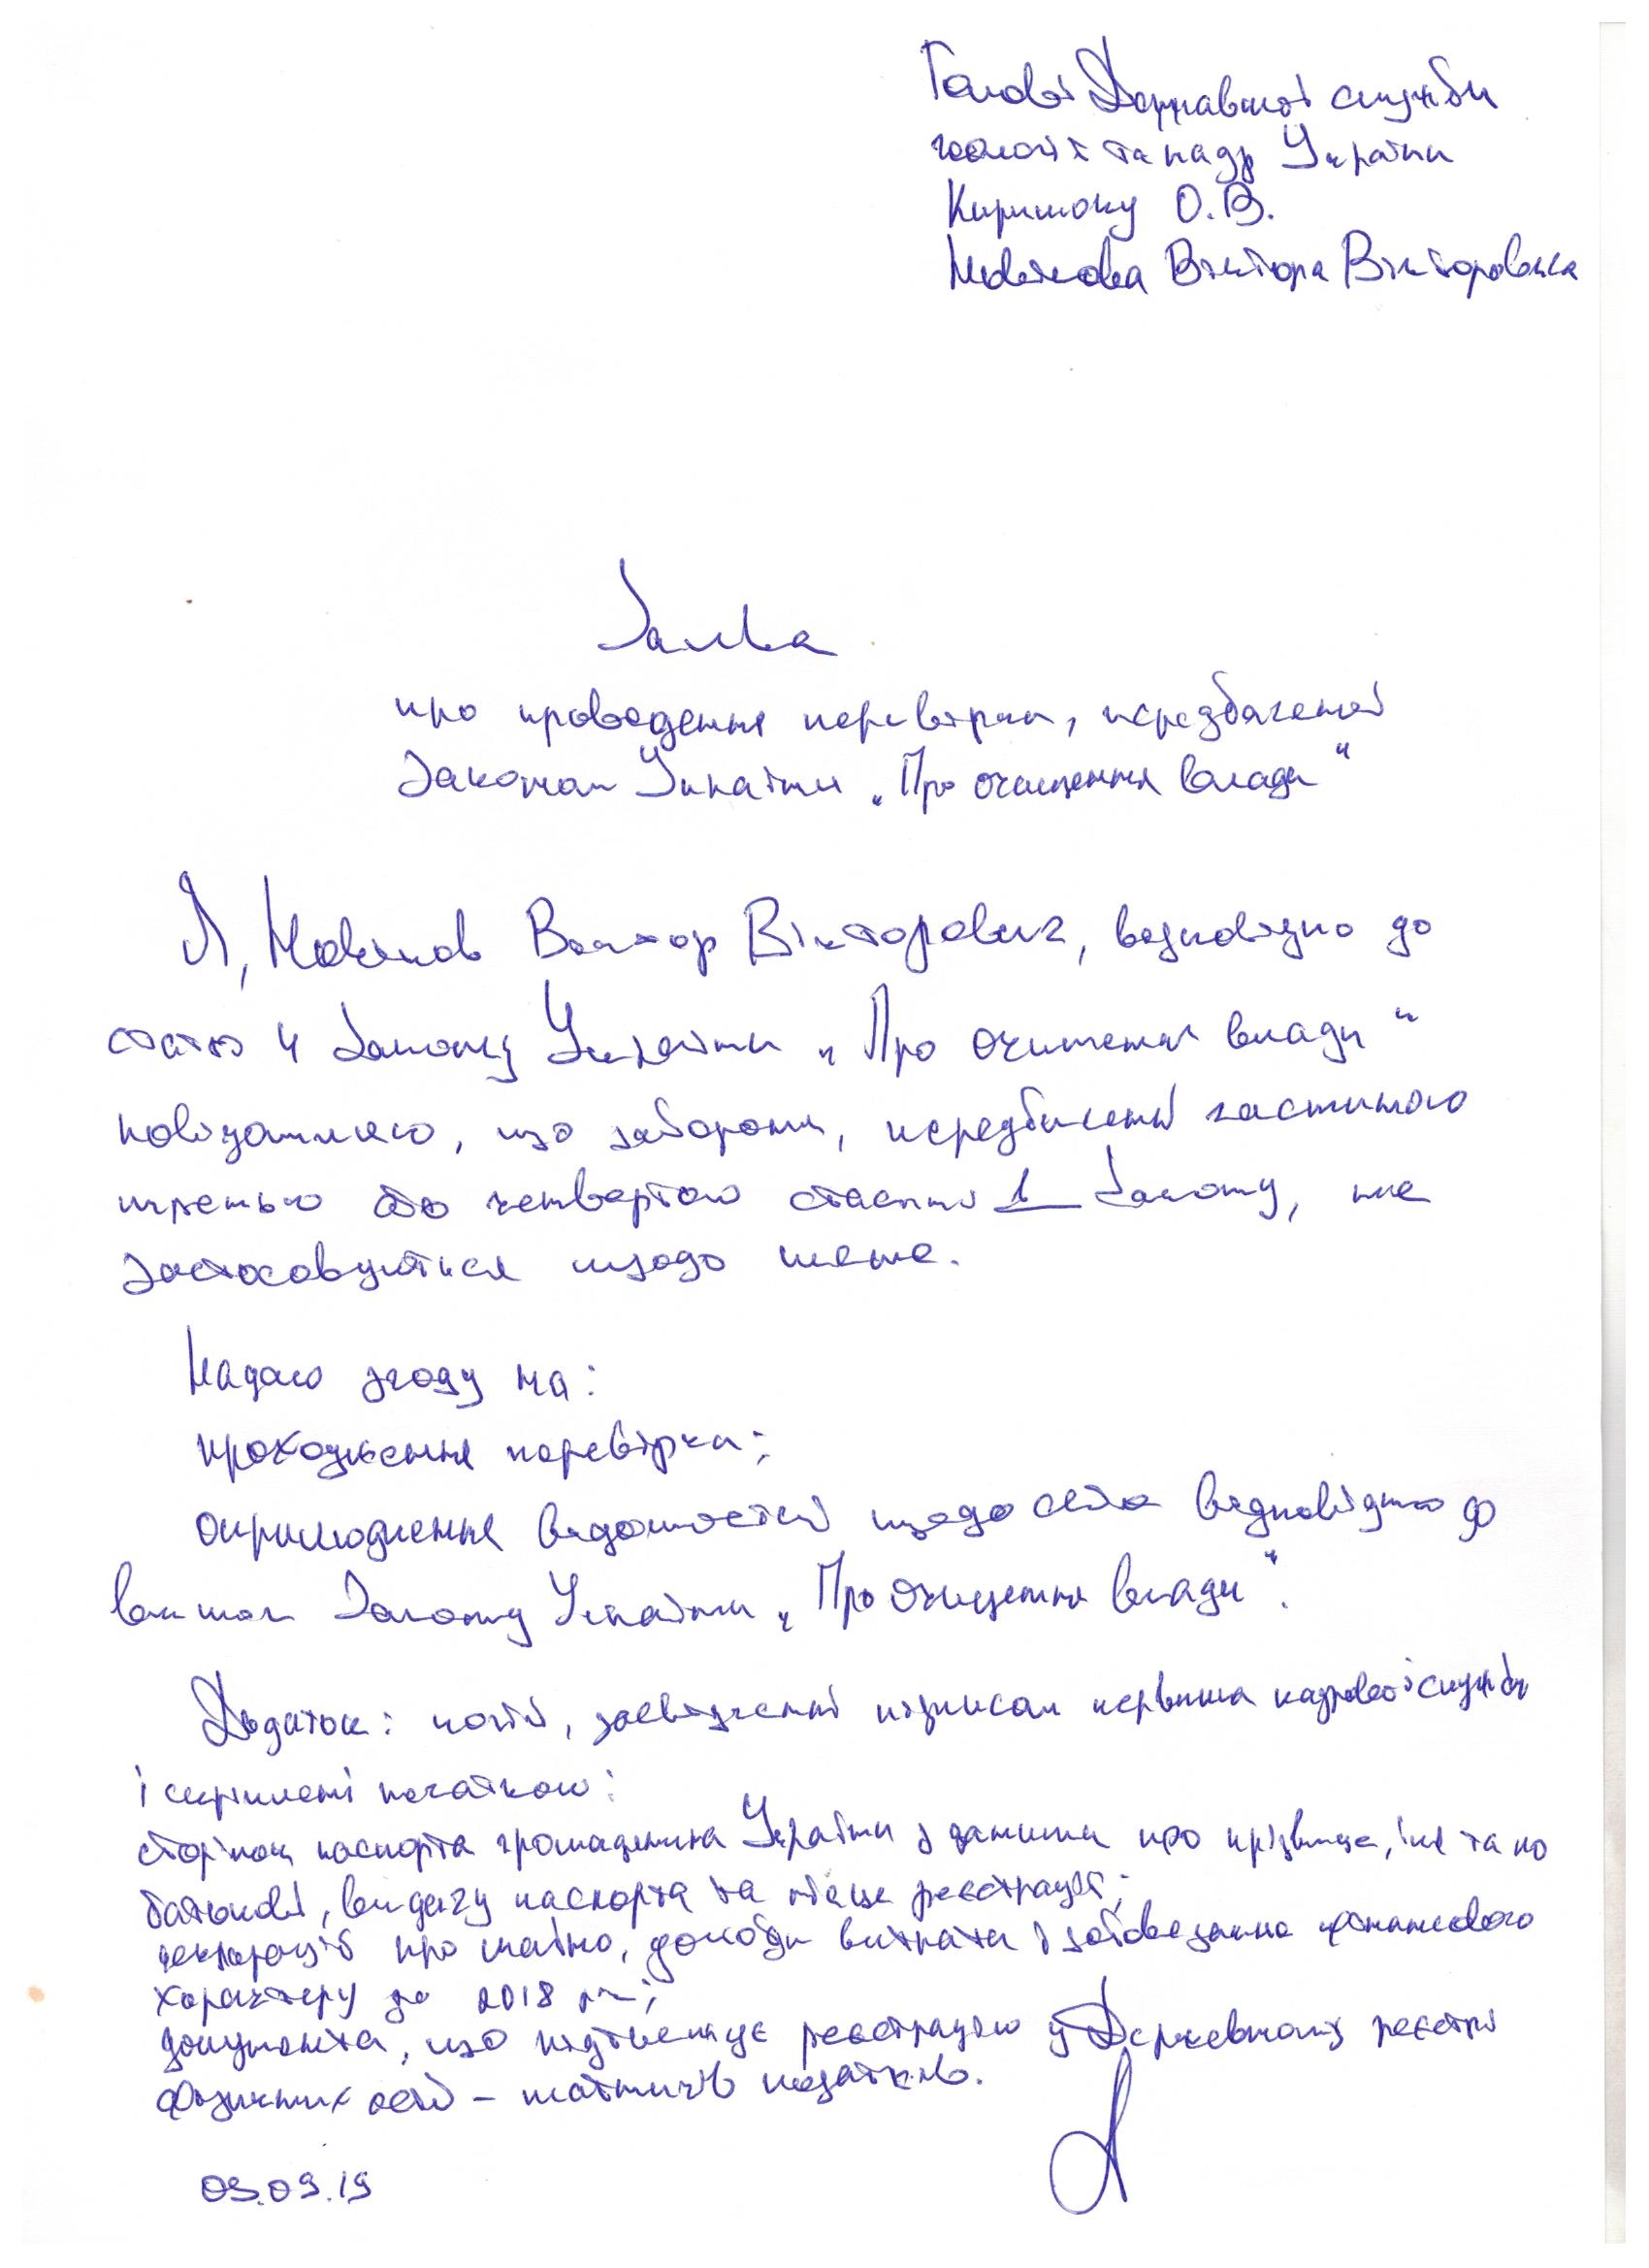 Голові Державної служби
геології та надр України
Кирилюку О.В.
Віктора Вікторовича
Заява
про проведення перевірки, передбаченої
Законом України „Про очищення влади“
Я, Віктор Вікторович, відповідно до
статті 4 Закону України „Про очищення влади“
повідомляю, що заборони, передбачені частиною
третьою або четвертою статті 1 Закону, не
застосовуються щодо мене.
Надаю згоду на:
проходження перевірки;
оприлюднення відомостей щодо себе відповідно до
вимог Закону України „Про очищення влади“.
Додаток: копії, засвідчені підписом керівника кадрової служби
і скріплені печаткою:
сторінок паспорта громадянина України з даними про прізвище, ім'я та по
батькові, видачу паспорта та місце реєстрації;
декларації про майно, доходи витрати і зобов'язання фінансового
характеру за 2018 рік;
документа, що підтверджує реєстрацію у Державному реєстрі
фізичних осіб – платників податків.
09.09.19